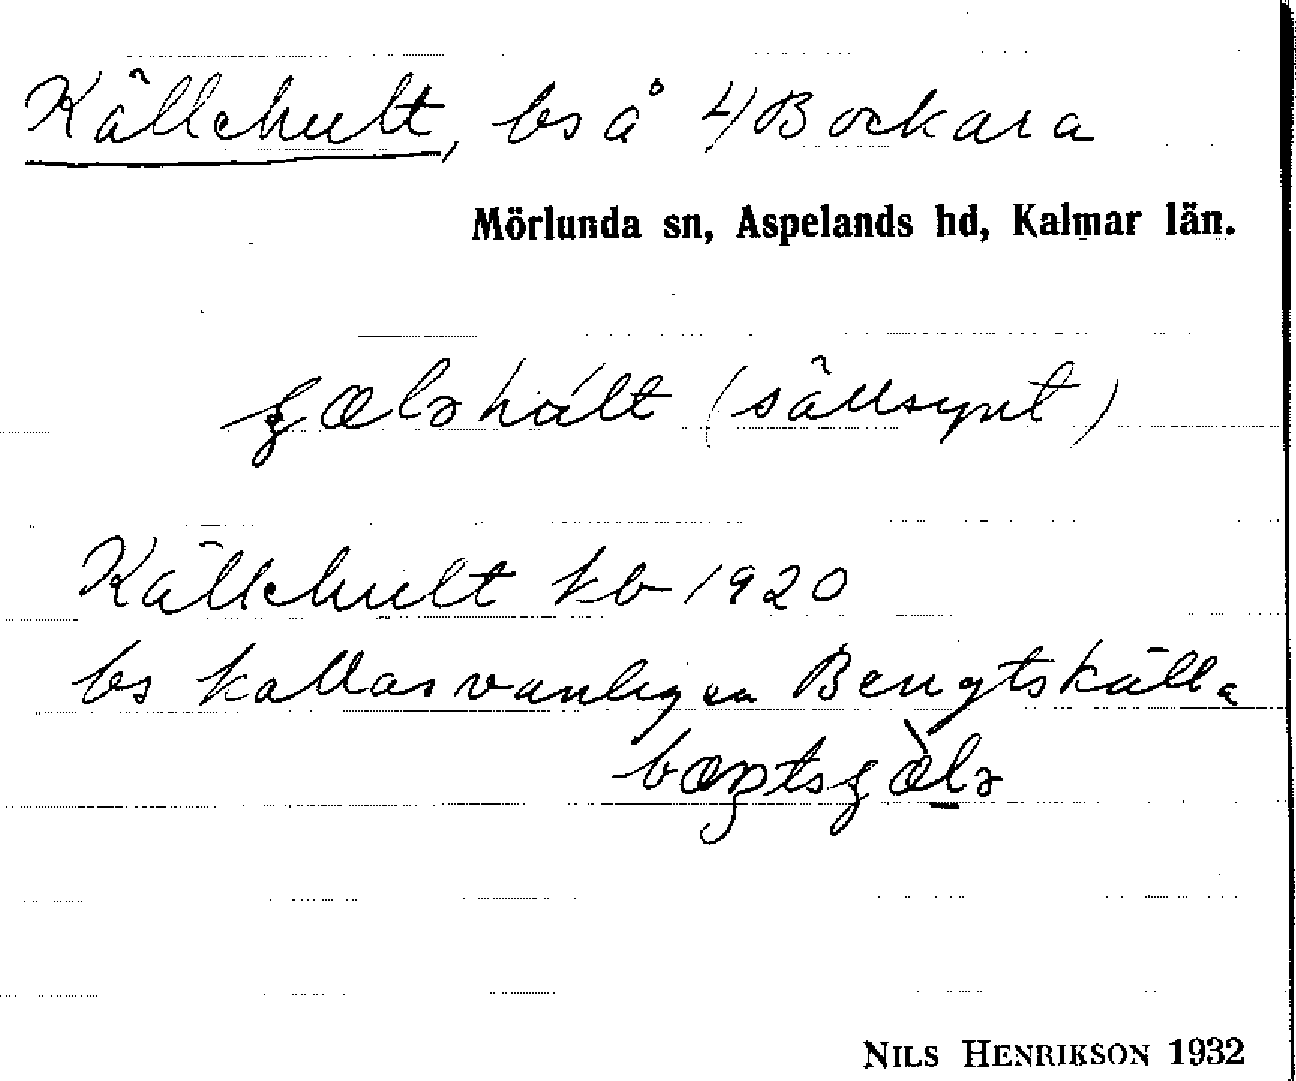 Källehult, bs å 4/ Bockara
Mörlunda sn, Aspelands hd, Kalmar län.
(sällsynt)
Källehult kb 1920
bs kallas vanligen Bengtskälla
NILS HENRIKSON 1932